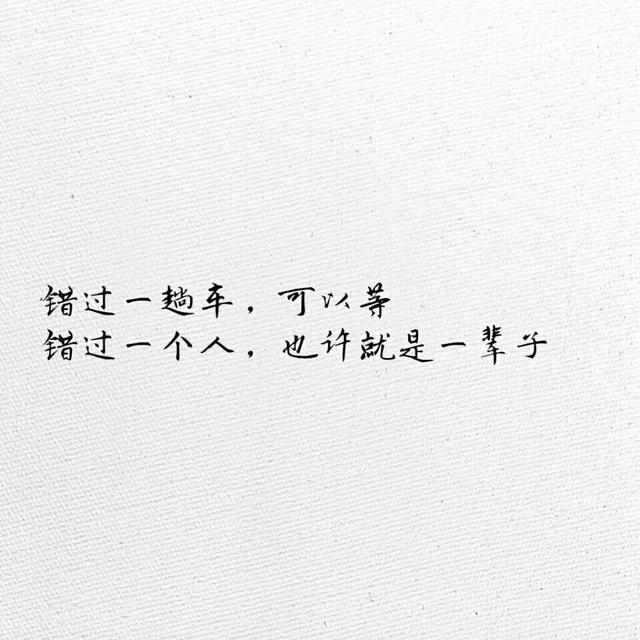 错过一趟车，可以等
错过一个人，也许就是一辈子